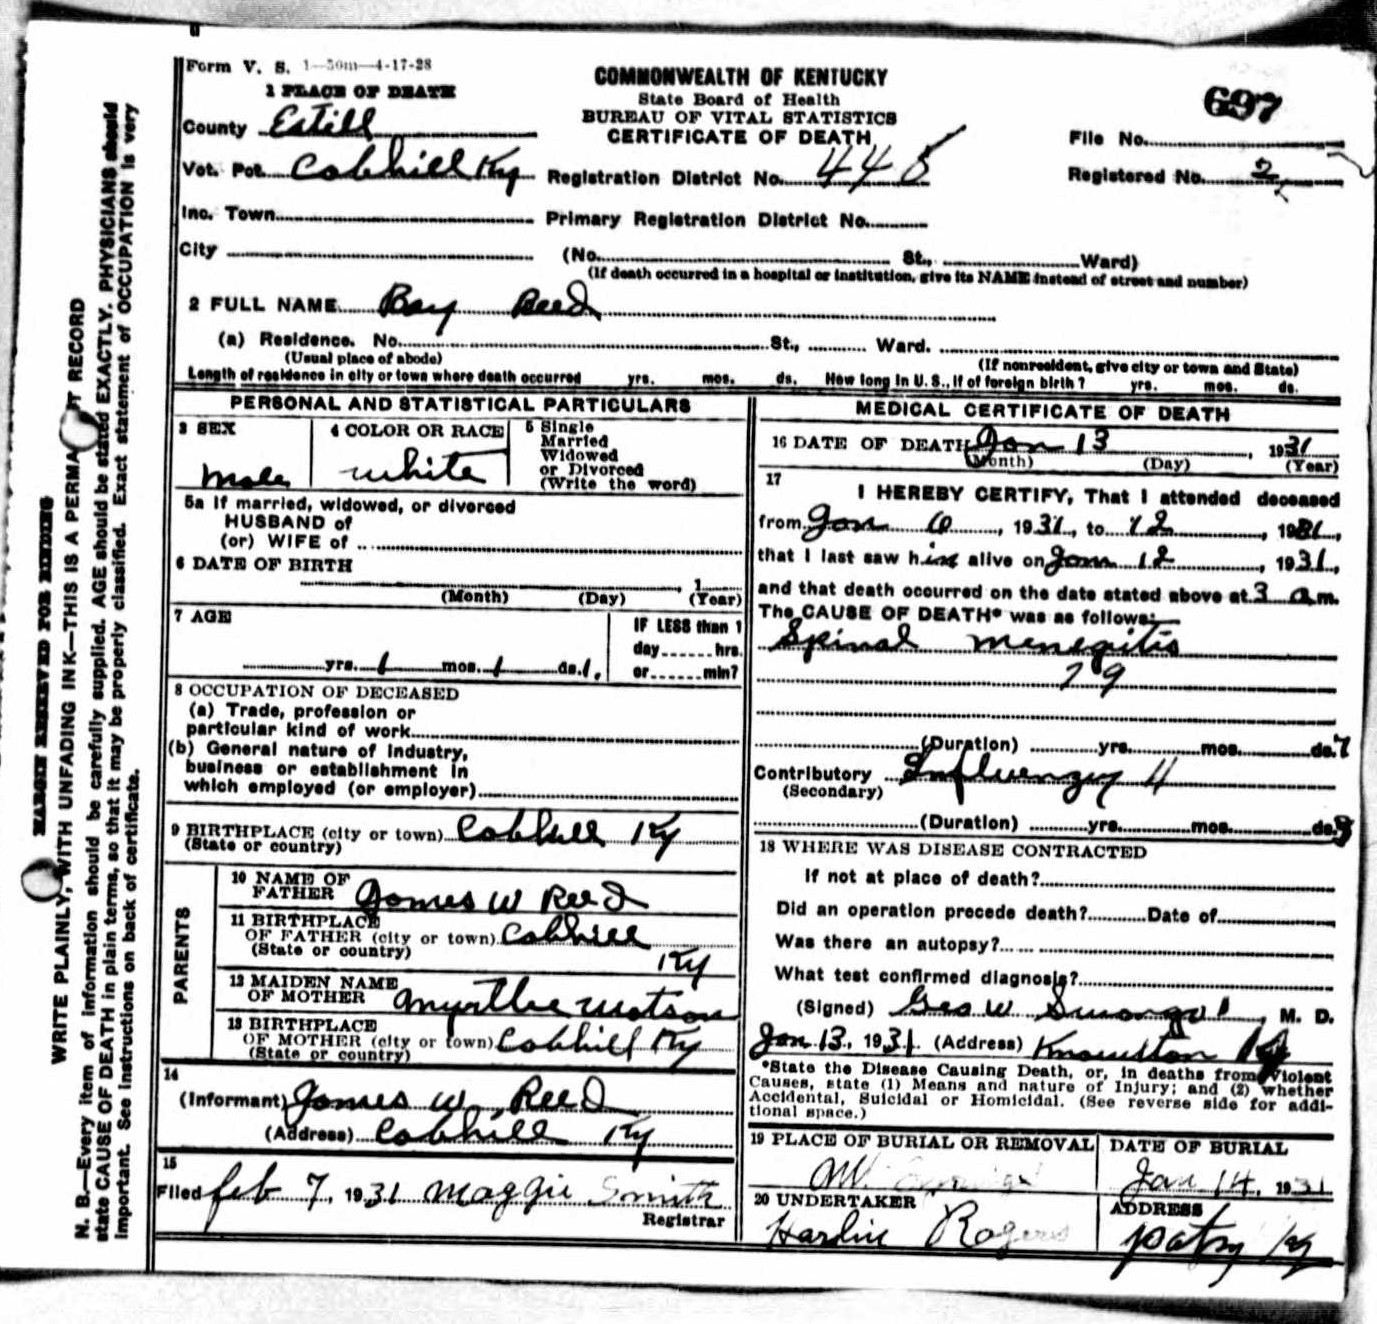 Form V. S. 1—50m—4-17-28
1 PLACE OF DEATH
COMMONWEALTH OF KENTUCKY
State Board of Health
BUREAU OF VITAL STATISTICS
CERTIFICATE OF DEATH
697
County Estill
File No.
Vot. Pct. Cobhill Ky Registration District No. 448 Registered No. 2
Inc. Town Primary Registration District No.
City (No. St., Ward)
(If death occurred in a hospital or institution, give its NAME instead of street and number)
2 FULL NAME Reed
(a) Residence. No. St., Ward.
(Usual place of abode) (If nonresident, give city or town and State)
Length of residence in city or town where death occurred yrs. mos. ds. How long in U. S., if of foreign birth? yrs. mos. ds.
PERSONAL AND STATISTICAL PARTICULARS
3 SEX
male
4 COLOR OR RACE
white
5 Single
Married
Widowed
or Divorced
(Write the word)
5a If married, widowed, or divorced
HUSBAND of
(or) WIFE of
6 DATE OF BIRTH
1
(Month) (Day) (Year)
7 AGE
yrs. 1 mos. 1 ds. 1.
IF LESS than 1
day hrs.
or min?
8 OCCUPATION OF DECEASED
(a) Trade, profession or
particular kind of work
(b) General nature of industry,
business or establishment in
which employed (or employer)
9 BIRTHPLACE (city or town) Cobhill Ky
(State or country)
PARENTS
10 NAME OF
FATHER James W Reed
11 BIRTHPLACE
OF FATHER (city or town) Cobhill
(State or country) Ky
12 MAIDEN NAME
OF MOTHER Myrtle Watson
13 BIRTHPLACE
OF MOTHER (city or town) Cobhill Ky
(State or country)
14
(Informant) James W. Reed
(Address) Cobhill Ky
15
Filed feb 7, 1931 Maggie Smith
Registrar
MEDICAL CERTIFICATE OF DEATH
16 DATE OF DEATH Jan 13, 1931
(Month) (Day) (Year)
17
I HEREBY CERTIFY, That I attended deceased
from Jan 6, 1931, to 12, 1931,
that I last saw him alive on Jan 12, 1931,
and that death occurred on the date stated above at 3 a.m.
The CAUSE OF DEATH* was as follows:
Spinal menegitis
79
(Duration) yrs. mos. ds. 7
Contributory Influenzy 11
(Secondary)
(Duration) yrs. mos. ds.
18 WHERE WAS DISEASE CONTRACTED
If not at place of death?
Did an operation precede death? Date of
Was there an autopsy?
What test confirmed diagnosis?
(Signed) Geo W , M. D.
Jan 13, 1931 (Address) Knowlton Ky
*State the Disease Causing Death, or, in deaths from Violent
Causes, state (1) Means and nature of Injury; and (2) whether
Accidental, Suicidal or Homicidal. (See reverse side for addi-
tional space.)
19 PLACE OF BURIAL OR REMOVAL
DATE OF BURIAL
Jan 14, 1931
20 UNDERTAKER
Harlin Rogers
ADDRESS
patsy Ky
MARGIN RESERVED FOR BINDING
WRITE PLAINLY, WITH UNFADING INK—THIS IS A PERMA T RECORD
N. B.—Every item of information should be carefully supplied. AGE should be stated EXACTLY. PHYSICIANS should
state CAUSE OF DEATH in plain terms, so that it may be properly classified. Exact statement of OCCUPATION is very
important. See instructions on back of certificate.